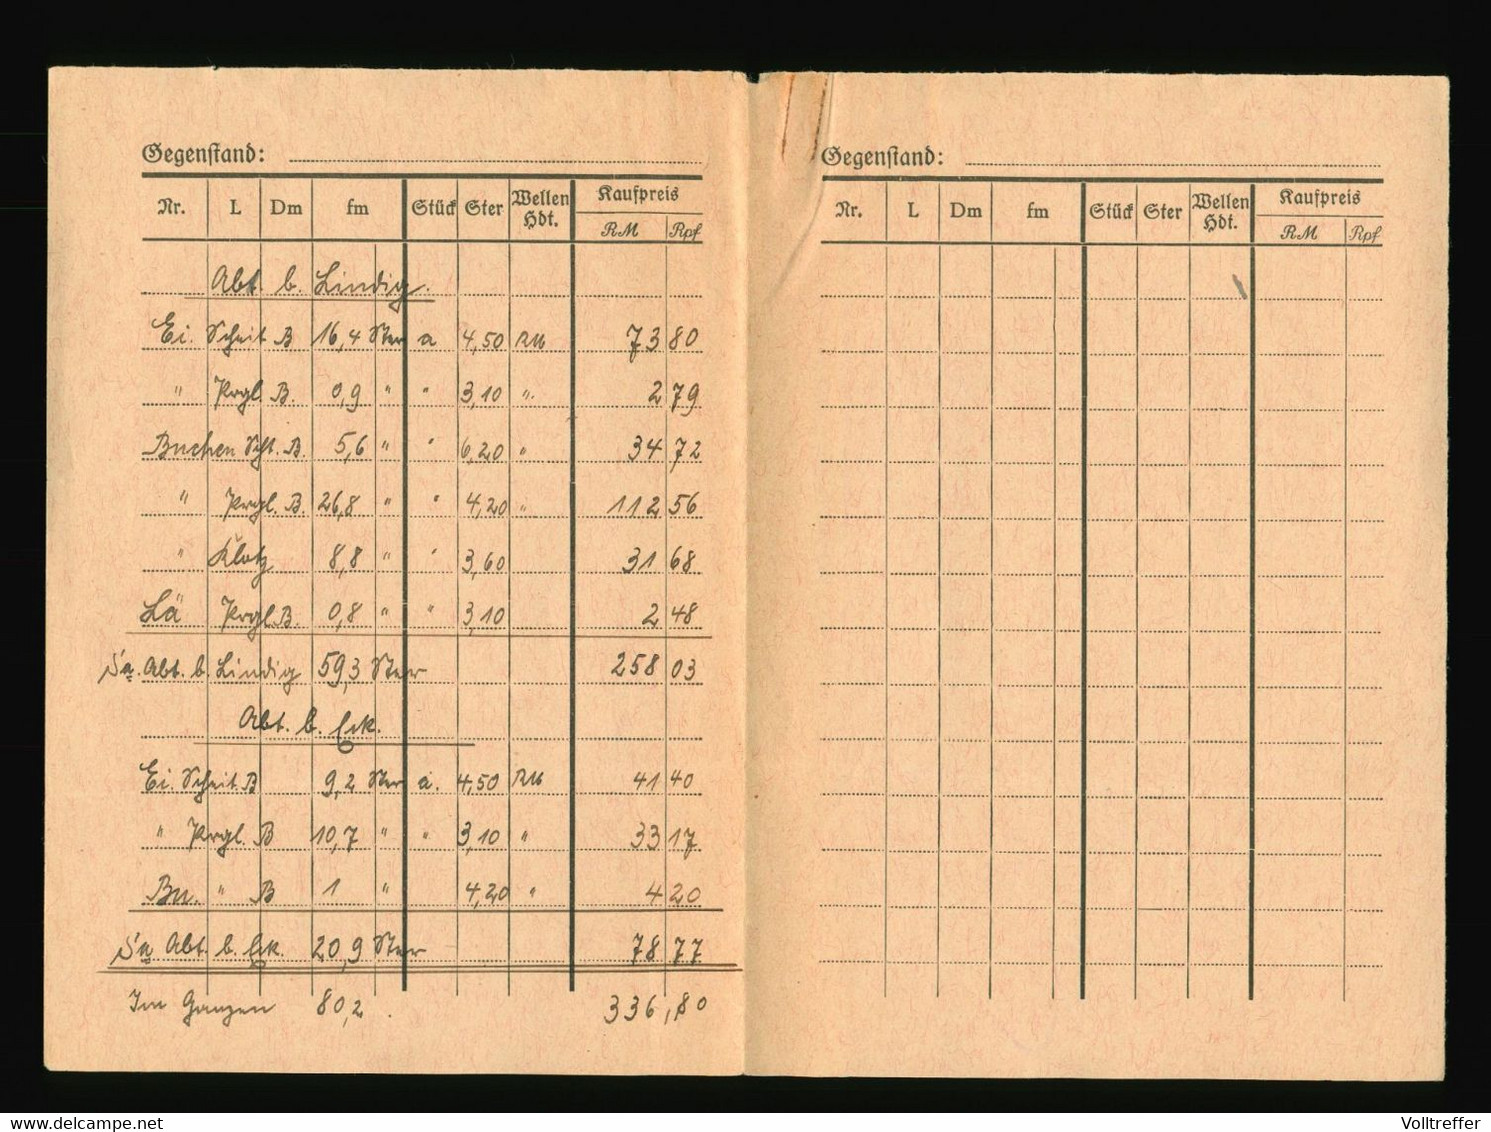 Gegenstand:
Nr. L Dm fm Stück Ster Wellen Hdt. Kaufpreis
RM Rpf
Abt. b. Lindig.
Ei. Scheit B 16,4 Ster a 4,50 RM 73 80
" Prgl. B. 0,9 " " 3,10 " 2 79
Buchen Scht. B. 5,6 " " 6,20 " 34 72
" Prgl. B. 26,8 " " 4,20 " 112 56
" Klotz 8,8 " " 3,60 31 68
Lä Prgl. B. 0,8 " " 3,10 2 48
Sa. Abt. b. Lindig 59,3 Ster 258 03
Abt. b.
Ei. Scheit B 9,2 Ster a. 4,50 RM 41 40
" Prgl. B 10,7 " " 3,10 " 33 17
Bu. " B 1 " 4,20 " 4 20
Sa Abt. b. 20,9 Ster 78 77
Im Ganzen 80,2. 336,80
Gegenstand:
Nr. L Dm fm Stück Ster Wellen Hdt. Kaufpreis
RM Rpf
delcampe.net
Volltreffer